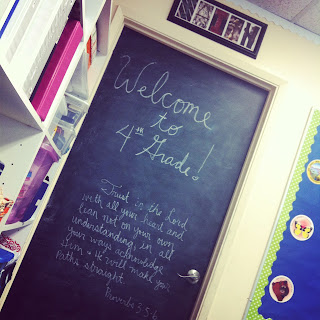 Welcome
to
4th Grade!
Trust in the Lord
with all your heart and
lean not on your own
understanding, in all
your ways acknowledge
Him & He will make your
Paths straight.
Proverbs 3:5-6